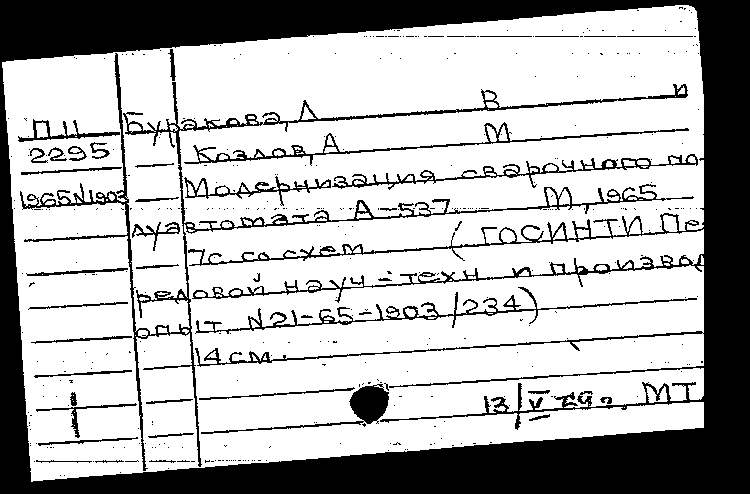 П 11 Буракова, Л В и
2295 Козлов, А М
1965N1903 Модернизация сварочного по-
луавтомата А-537. М, 1965
7с. со схем (ГОСИНТИ Пе
редовой науч-техн и производ
опыт. N21-65-1903/234)
14 см.
13/V МТ